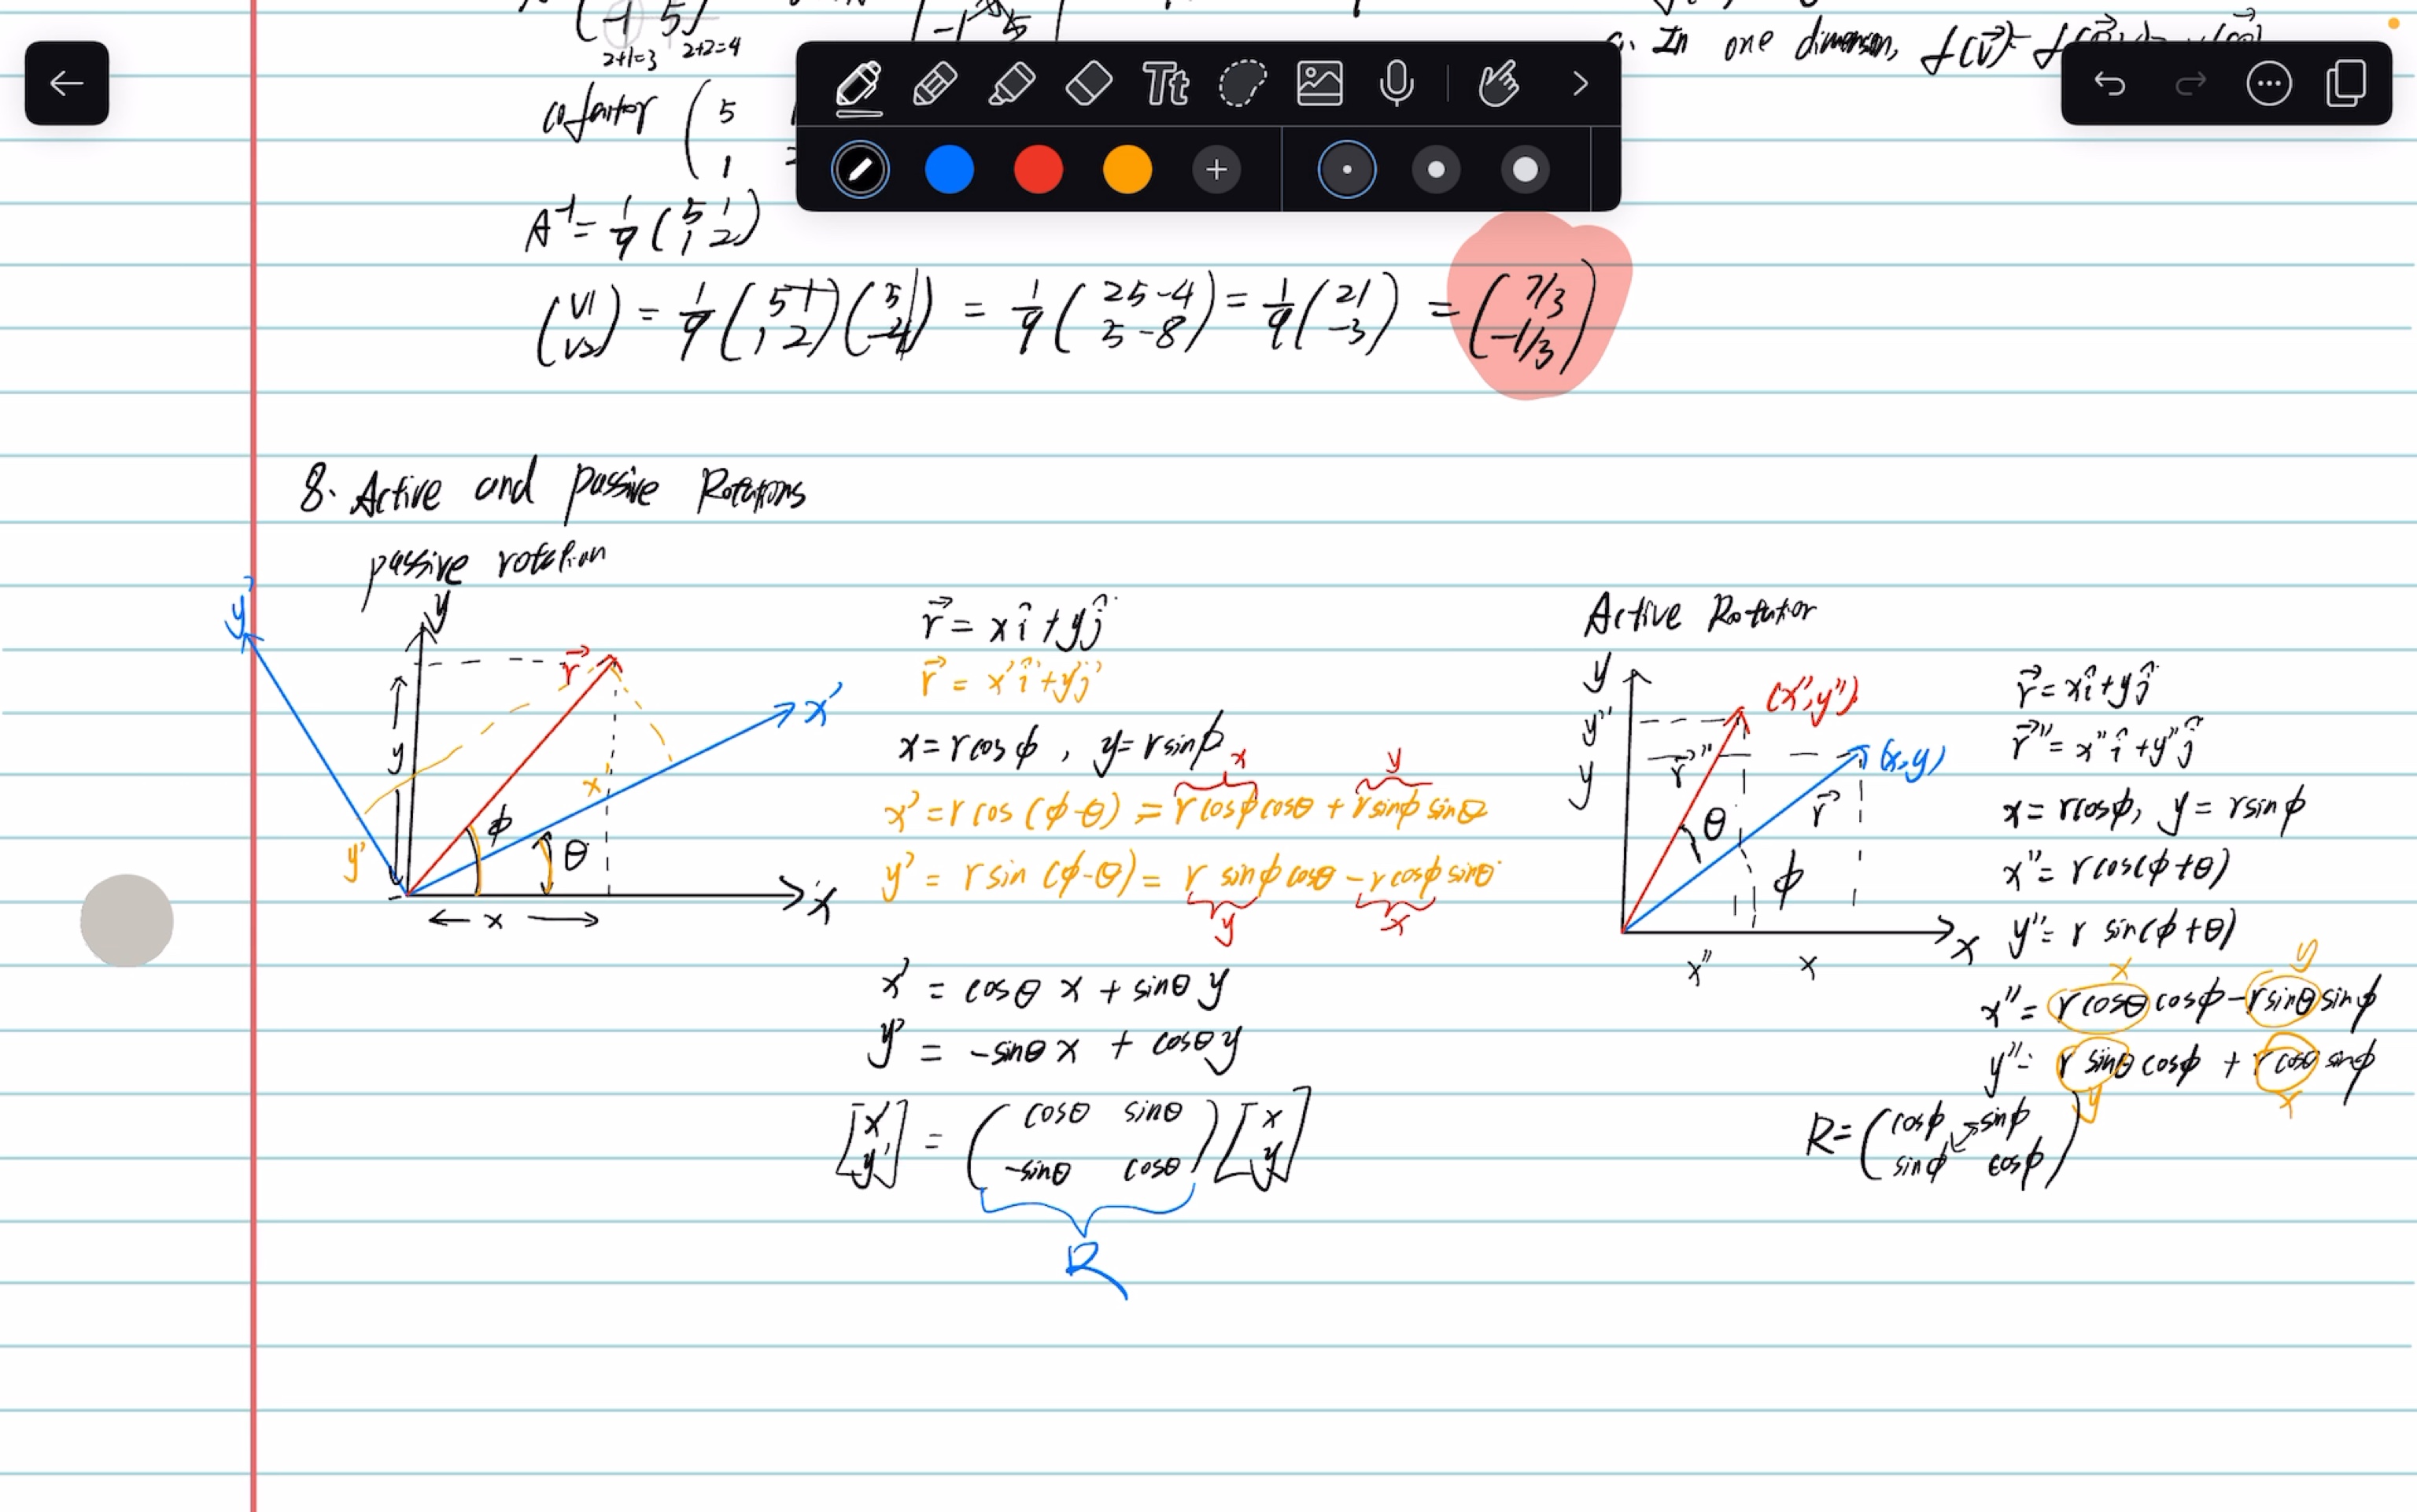 (-1 5)
2+1=3 2+2=4
-1 5
a. In one dimension, f(v⃗)=
cofactor ( 5
1
Tt
A⁻¹ = 1/9 ( 5 1
1 2 )
( V1
V2 ) = 1/9 ( 5 1
1 2 ) ( 5
-4 ) = 1/9 ( 25-4
5-8 ) = 1/9 ( 21
-3 ) = ( 7/3
-1/3 )
8. Active and passive Rotations
passive rotation
y'
y
r⃗
x'
y
x'
y'
φ
θ
x
x
r⃗ = x î + y ĵ
r⃗ = x' î' + y' ĵ'
x = r cos φ , y = r sin φ
x y
x' = r cos (φ-θ) = r cosφ cosθ + r sinφ sinθ
y' = r sin (φ-θ) = r sinφ cosθ - r cosφ sinθ
y x
x' = cosθ x + sinθ y
y' = -sinθ x + cosθ y
[ x'
y' ] = ( cosθ sinθ
-sinθ cosθ ) [ x
y ]
R
Active Rotation
y
y''
y
(x'', y'')
r⃗''
(x,y)
r⃗
θ
φ
x
x'' x
r⃗ = x î + y ĵ
r⃗'' = x'' î + y'' ĵ
x = r cosφ, y = r sin φ
x'' = r cos(φ+θ)
y'' = r sin(φ+θ)
x y
x'' = r cosθ cosφ - r sinθ sinφ
y'' = r sinθ cosφ + r cosθ sinφ
y x
R = ( cosφ -sinφ
sinφ cosφ )